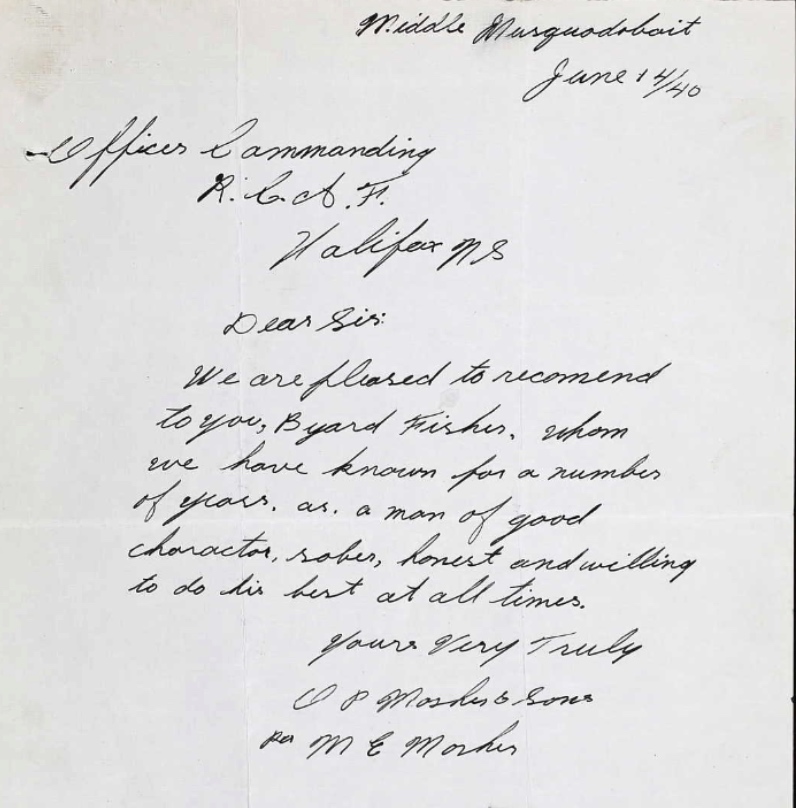 Middle Musquodoboit
June 14/40
Officer Commanding
R.C.A.F.
Halifax NS
Dear Sir:
We are pleased to recomend
to you, Byard Fisher, whom
we have known for a number
of years. as. a man of good
charactor, sober, honest and willing
to do his best at all times.
Yours Very Truly
O P Mosher & Sons
per M E Mosher